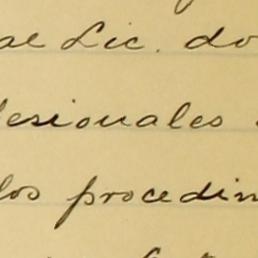 al Lic. do
esionales
los procedim